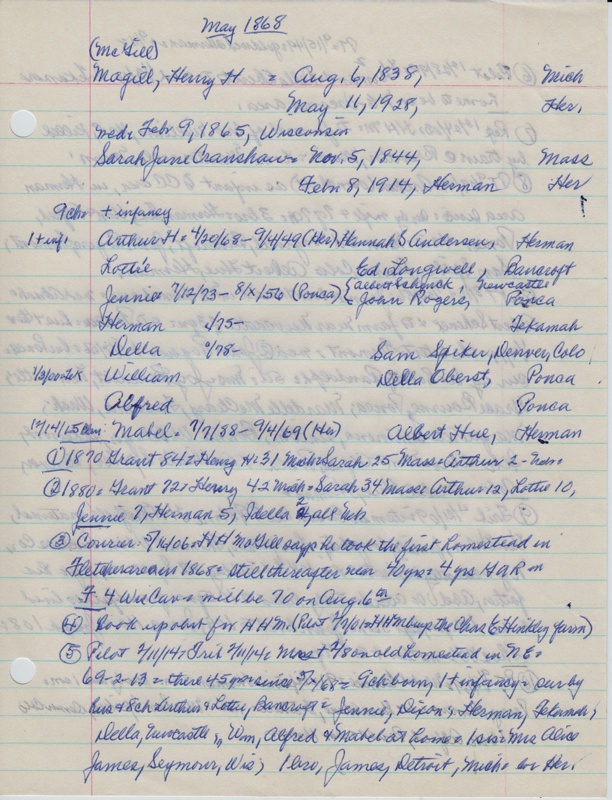 May 1868
(McGill)
Magill, Henry H = Aug. 6, 1838, Mich
May 11, 1928, Her.
wed: Feb. 9, 1865, Wisconsin
Sarah Jane Cranshaw = Nov. 5, 1844, Mass
Feb. 8, 1914, Herman Her
9 ch = + infancy
1 + inf. Arthur H = 4/20/68 - 9/4/49 (Her) Hannah S Andersen, Herman
Lottie Ed Longwell, Bancroft
Jennie 7/12/73 - 8/x/56 (Ponca) { Albert Schenck, Newcastle
John Rogers, Ponca
Herman c/75- Tekamah
Della c/78- Sam Spiker, Denver, Colo.
William Della Oberst, Ponca
Alfred Ponca
Mabel = 7/7/88 - 9/4/69 (Her) Albert Hue, Herman
① 1870 Grant 84 = Henry H 31 Mich = Sarah 25 Mass = Arthur 2 - Neb =
② 1880 = Grant 72 = Henry 42 Mich = Sarah 34 Mass = Arthur 12, Lottie 10,
Jennie 7, Herman 5, Idella 2, all Neb
③ Courier 5/11/06 = HH McGill says he took the first homestead in
Fletcher area in 1868 = still thereafter near 40 yrs = 4 yrs GAR in
F. 4 Wis Cav = will be 70 on Aug. 6th
④ Look up obit for HHM. (Pilot 7/7/01 = HHM buys the Chas E Hinkley farm)
⑤ Pilot 2/11/14 = Trib 2/11/14 = Mrs at 2/8 on old homestead in NE =
69-2-13 = there 45 yrs since 5/x/68 = 9 ch born, 1 + infancy = sur by
hus & 8 ch Arthur & Lottie, Bancroft = Jennie, Dixon; Herman, Tekamah;
Della, Newcastle; Wm, Alfred & Mabel at home = 1 sis: Mrs Alice
James, Seymour, Wis; 1 bro, James, Detroit, Mich = bur Her.